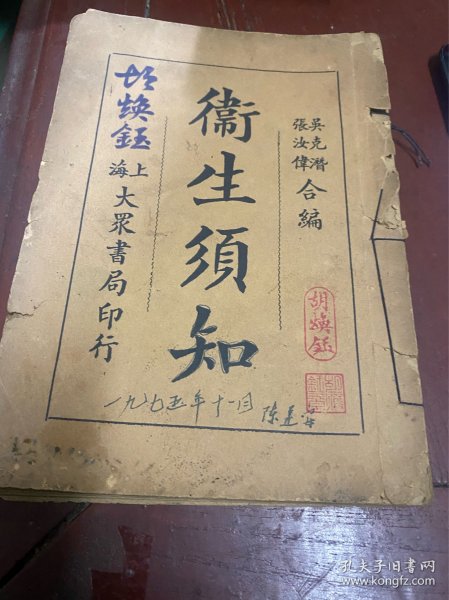 吳克潛
張汝偉
合編
衞生須知
胡煥鈺
上海
大眾書局印行
胡煥鈺
一九七五年十一月
孔夫子旧书网
www.kongfz.com